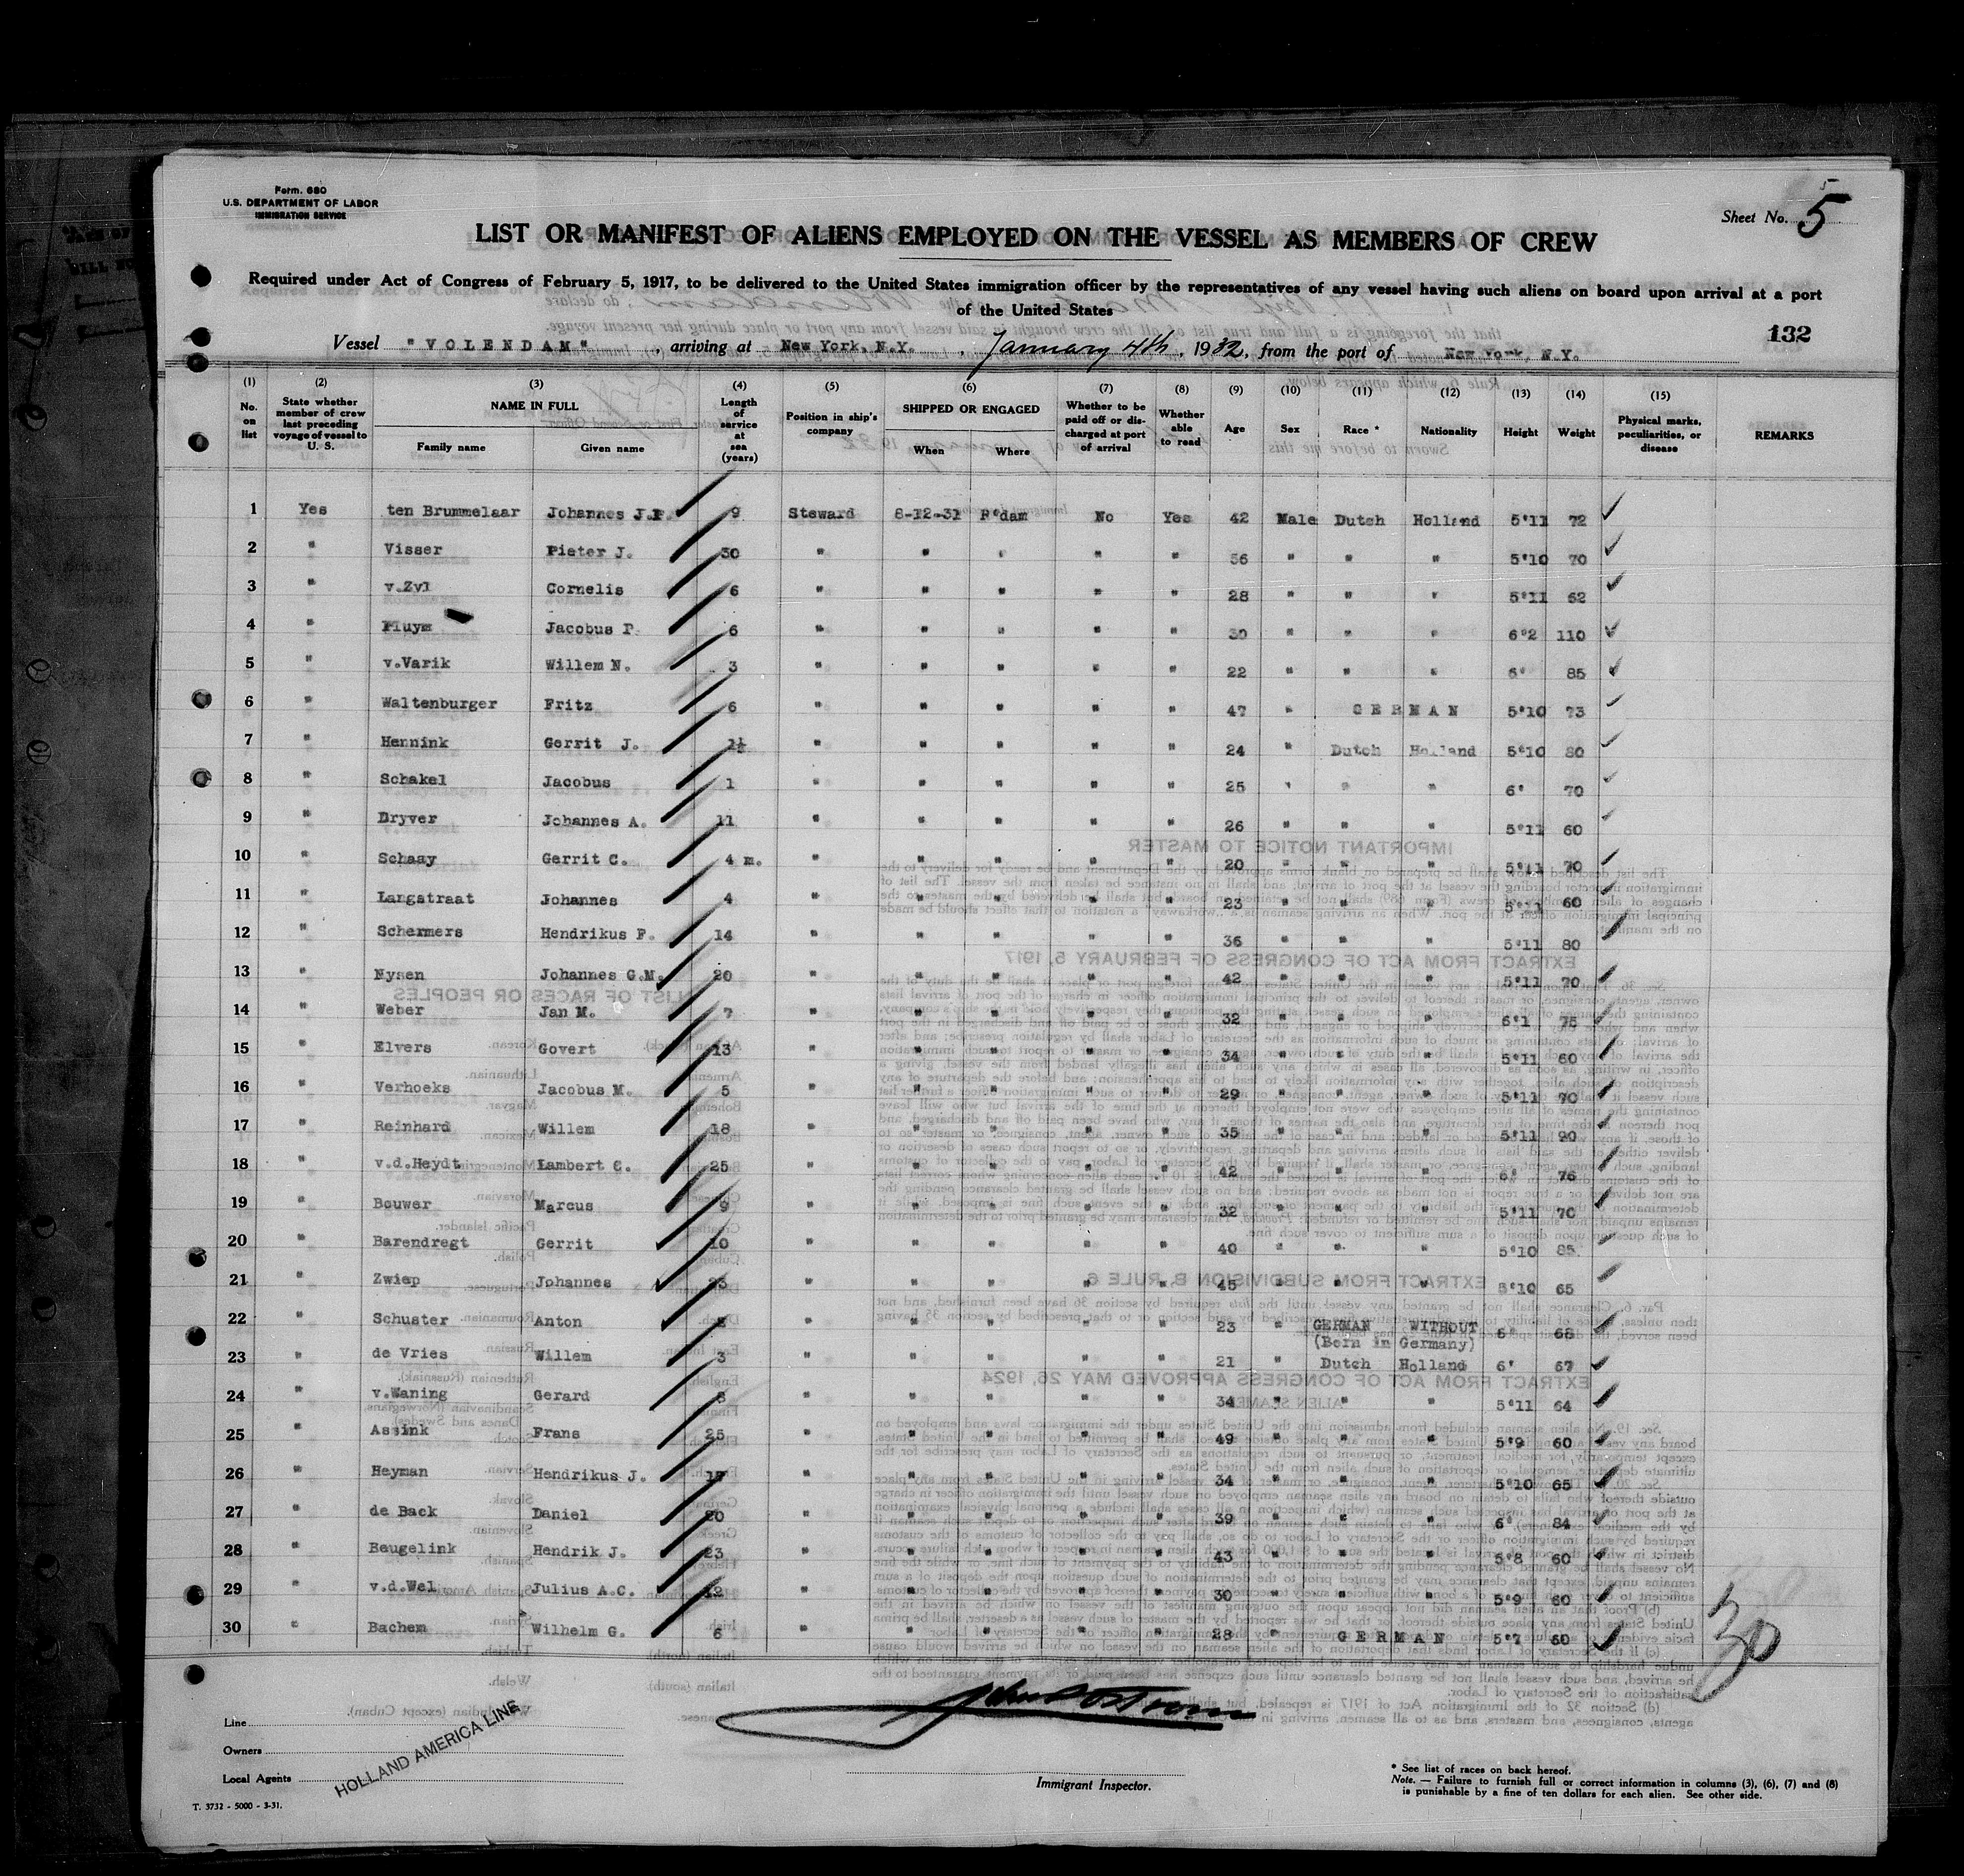 Form. 680
U.S. DEPARTMENT OF LABOR
IMMIGRATION SERVICE
Sheet No. 5
LIST OR MANIFEST OF ALIENS EMPLOYED ON THE VESSEL AS MEMBERS OF CREW
Required under Act of Congress of February 5, 1917, to be delivered to the United States immigration officer by the representatives of any vessel having such aliens on board upon arrival at a port
of the United States
132
Vessel "VOLENDAM", arriving at New York, N.Y., January 4th, 1932, from the port of New York, N.Y.
(1) (2) (3) (4) (5) (6) (7) (8) (9) (10) (11) (12) (13) (14) (15)
No. on list State whether member of crew last preceding voyage of vessel to U. S. NAME IN FULL Family name Given name Length of service at sea (years) Position in ship's company SHIPPED OR ENGAGED When Where Whether to be paid off or discharged at port of arrival Whether able to read Age Sex Race * Nationality Height Weight Physical marks, peculiarities, or disease REMARKS
1 Yes ten Brummelaar Johannes J.F. 9 Steward 8-12-31 R'dam No Yes 42 Male Dutch Holland 5'11 72
2 " Visser Pieter J. 30 " " " " " 56 " " " 5'10 70
3 " v.Zyl Cornelis 6 " " " " " 28 " " " 5'11 62
4 " Pluym Jacobus P. 6 " " " " " 30 " " " 6'2 110
5 " v.Varik Willem N. 3 " " " " " 22 " " " 6' 85
6 " Waltenburger Fritz 6 " " " " " 47 " GERMAN 5'10 73
7 " Hennink Gerrit J. 1½ " " " " " 24 " Dutch Holland 5'10 80
8 " Schakel Jacobus 1 " " " " " 25 " " " 6' 70
9 " Dryver Johannes A. 11 " " " " " 26 " " " 5'11 60
10 " Schaay Gerrit C. 4 m. " " " " " 20 " " " 5'11 70
11 " Langstraat Johannes 4 " " " " " 23 " " " 5'11 60
12 " Schermers Hendrikus F. 14 " " " " " 36 " " " 5'11 80
13 " Nysen Johannes G.M. 20 " " " " " 42 " " " 5'11 70
14 " Weber Jan M. 7 " " " " " 32 " " " 6'1 75
15 " Elvers Govert 13 " " " " " 34 " " " 5'11 60
16 " Verhoeks Jacobus M. 5 " " " " " 29 " " " 5'11 70
17 " Reinhard Willem 18 " " " " " 35 " " " 5'11 90
18 " v.d.Heydt Lambert C. 25 " " " " " 42 " " " 6' 76
19 " Bouwer Marcus 9 " " " " " 32 " " " 5'11 70
20 " Barendregt Gerrit 10 " " " " " 40 " " " 5'10 85
21 " Zwiep Johannes 23 " " " " " 45 " " " 5'10 65
22 " Schuster Anton " " " " " 23 " GERMAN WITHOUT 6' 68
(Born in Germany)
23 " de Vries Willem 3 " " " " " 21 " Dutch Holland 6' 67
24 " v.Waning Gerard 8 " " " " " 34 " " " 5'11 64
25 " Assink Frans 25 " " " " " 49 " " " 5'9 60
26 " Heyman Hendrikus J. " " " " " 34 " " " 5'10 65
27 " de Back Daniel 20 " " " " " 39 " " " 6' 84
28 " Beugelink Hendrik J. 23 " " " " " 43 " " " 5'8 60
29 " v.d.Wel Julius A.C. 12 " " " " " 30 " " " 5'9 60
30 " Bachem Wilhelm G. 6 " " " " " 28 " GERMAN 5'7 60
30
Line
Owners
Local Agents
HOLLAND AMERICA LINE
T. 3732 - 5000 - 3-31.
Immigrant Inspector.
* See list of races on back hereof.
Note. — Failure to furnish full or correct information in columns (3), (6), (7) and (8)
is punishable by a fine of ten dollars for each alien. See other side.